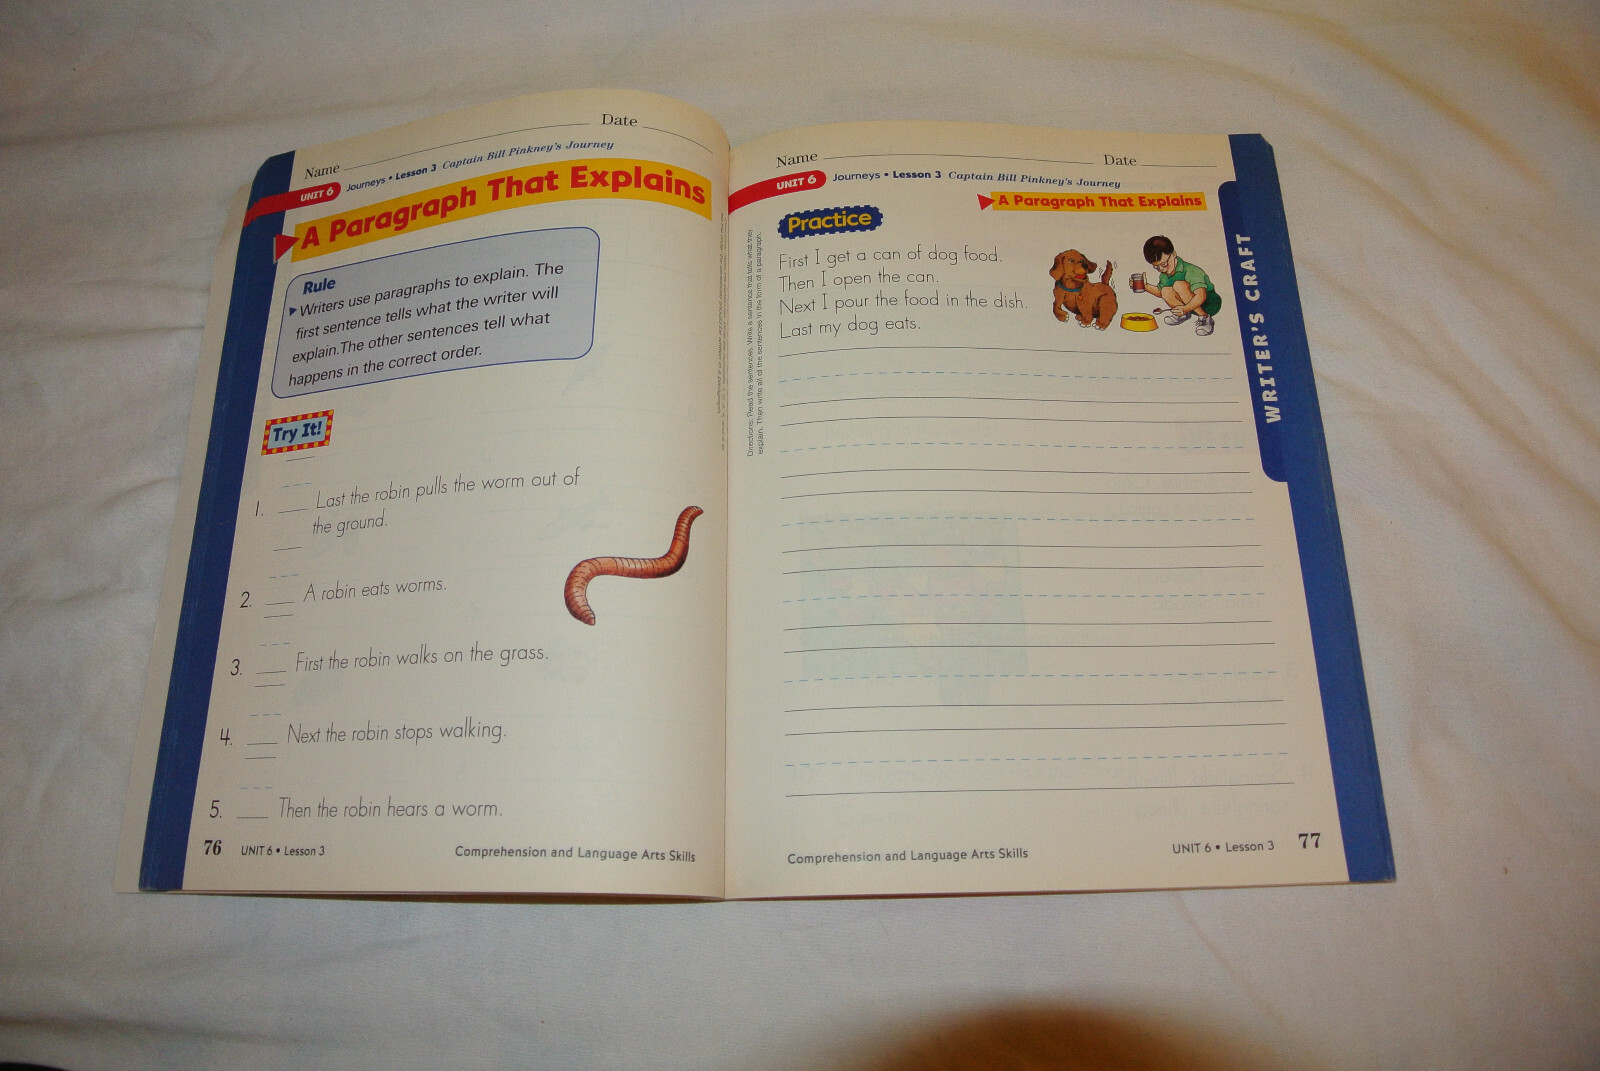 Name Date
UNIT 6 Journeys • Lesson 3 Captain Bill Pinkney's Journey
A Paragraph That Explains
Rule
Writers use paragraphs to explain. The
first sentence tells what the writer will
explain.The other sentences tell what
happens in the correct order.
Try It!
1. Last the robin pulls the worm out of
the ground.
2. A robin eats worms.
3. First the robin walks on the grass.
4. Next the robin stops walking.
5. Then the robin hears a worm.
76 UNIT 6 • Lesson 3 Comprehension and Language Arts Skills
Name Date
UNIT 6 Journeys • Lesson 3 Captain Bill Pinkney's Journey
A Paragraph That Explains
Practice
Directions: Read the sentences. Write a sentence that tells what they
explain. Then write all of the sentences in the form of a paragraph.
First I get a can of dog food.
Then I open the can.
Next I pour the food in the dish.
Last my dog eats.
WRITER'S CRAFT
Comprehension and Language Arts Skills UNIT 6 • Lesson 3 77